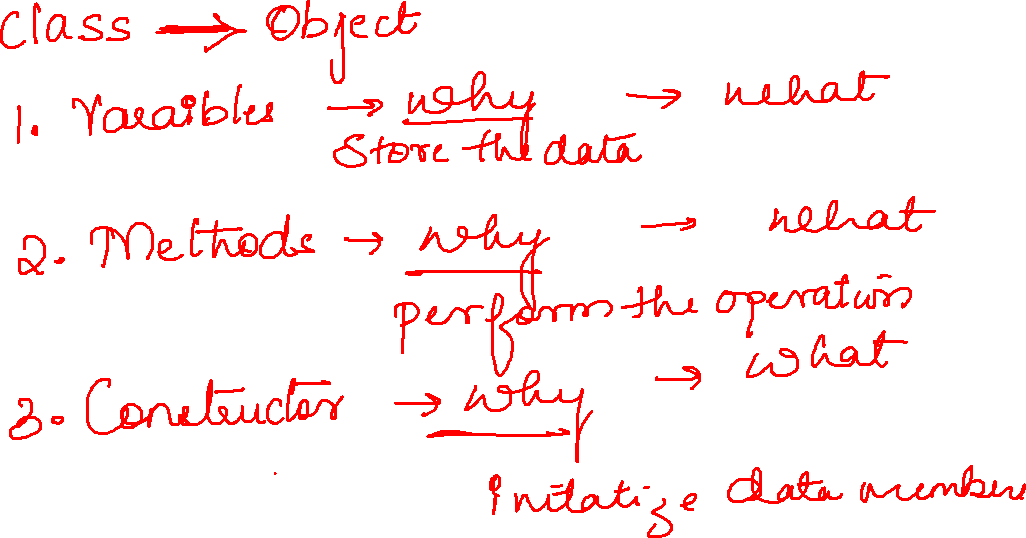 Class → Object
1. Varaibles → why → what
Store the data
2. Methods → why → what
perform the operations
3. Constructor → why → what
initatize data members